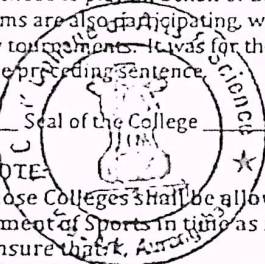 to play on behalf of
ms are also participating, w
y tournaments. It was for th
e preceding sentence.
Seal of the College
OTE-
ose Colleges shall be allow
ment of Sports in time as
nsure that
College of
Science